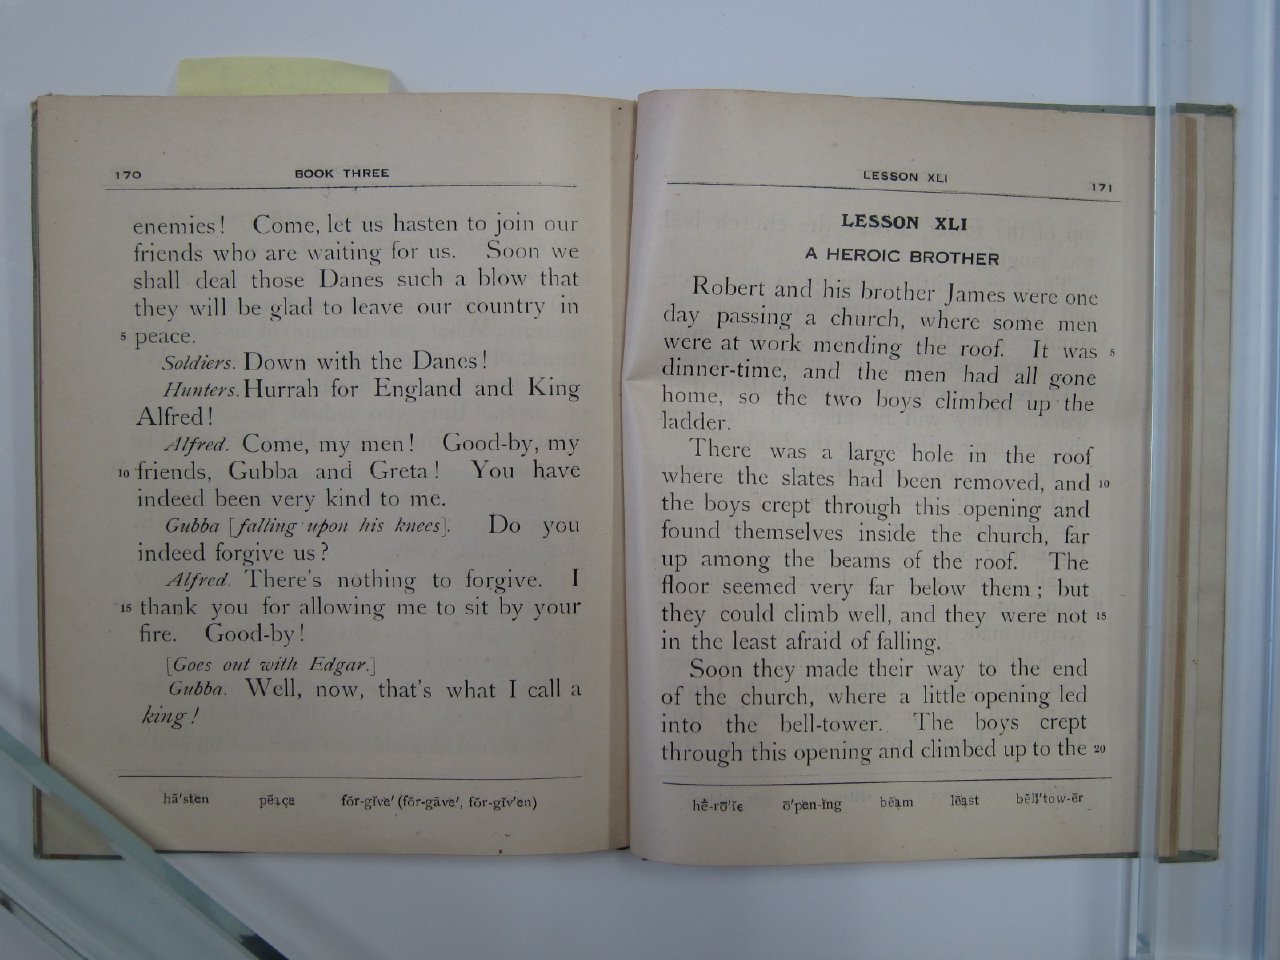 170 BOOK THREE
enemies! Come, let us hasten to join our
friends who are waiting for us. Soon we
shall deal those Danes such a blow that
they will be glad to leave our country in
5 peace.
Soldiers. Down with the Danes!
Hunters. Hurrah for England and King
Alfred!
Alfred. Come, my men! Good-by, my
10 friends, Gubba and Greta! You have
indeed been very kind to me.
Gubba [falling upon his knees]. Do you
indeed forgive us?
Alfred. There's nothing to forgive. I
15 thank you for allowing me to sit by your
fire. Good-by!
[Goes out with Edgar.]
Gubba. Well, now, that's what I call a
king!
hā'sten pēaçe fŏr-gĭve' (fŏr-gāve', fŏr-gĭv'en)
LESSON XLI 171
LESSON XLI
A HEROIC BROTHER
Robert and his brother James were one
day passing a church, where some men
were at work mending the roof. It was 5
dinner-time, and the men had all gone
home, so the two boys climbed up the
ladder.
There was a large hole in the roof
where the slates had been removed, and 10
the boys crept through this opening and
found themselves inside the church, far
up among the beams of the roof. The
floor seemed very far below them; but
they could climb well, and they were not 15
in the least afraid of falling.
Soon they made their way to the end
of the church, where a little opening led
into the bell-tower. The boys crept
through this opening and climbed up to the 20
hē-rō'ĭc ō'pen-ĭng bēam lēast bĕll'tow-ẽr